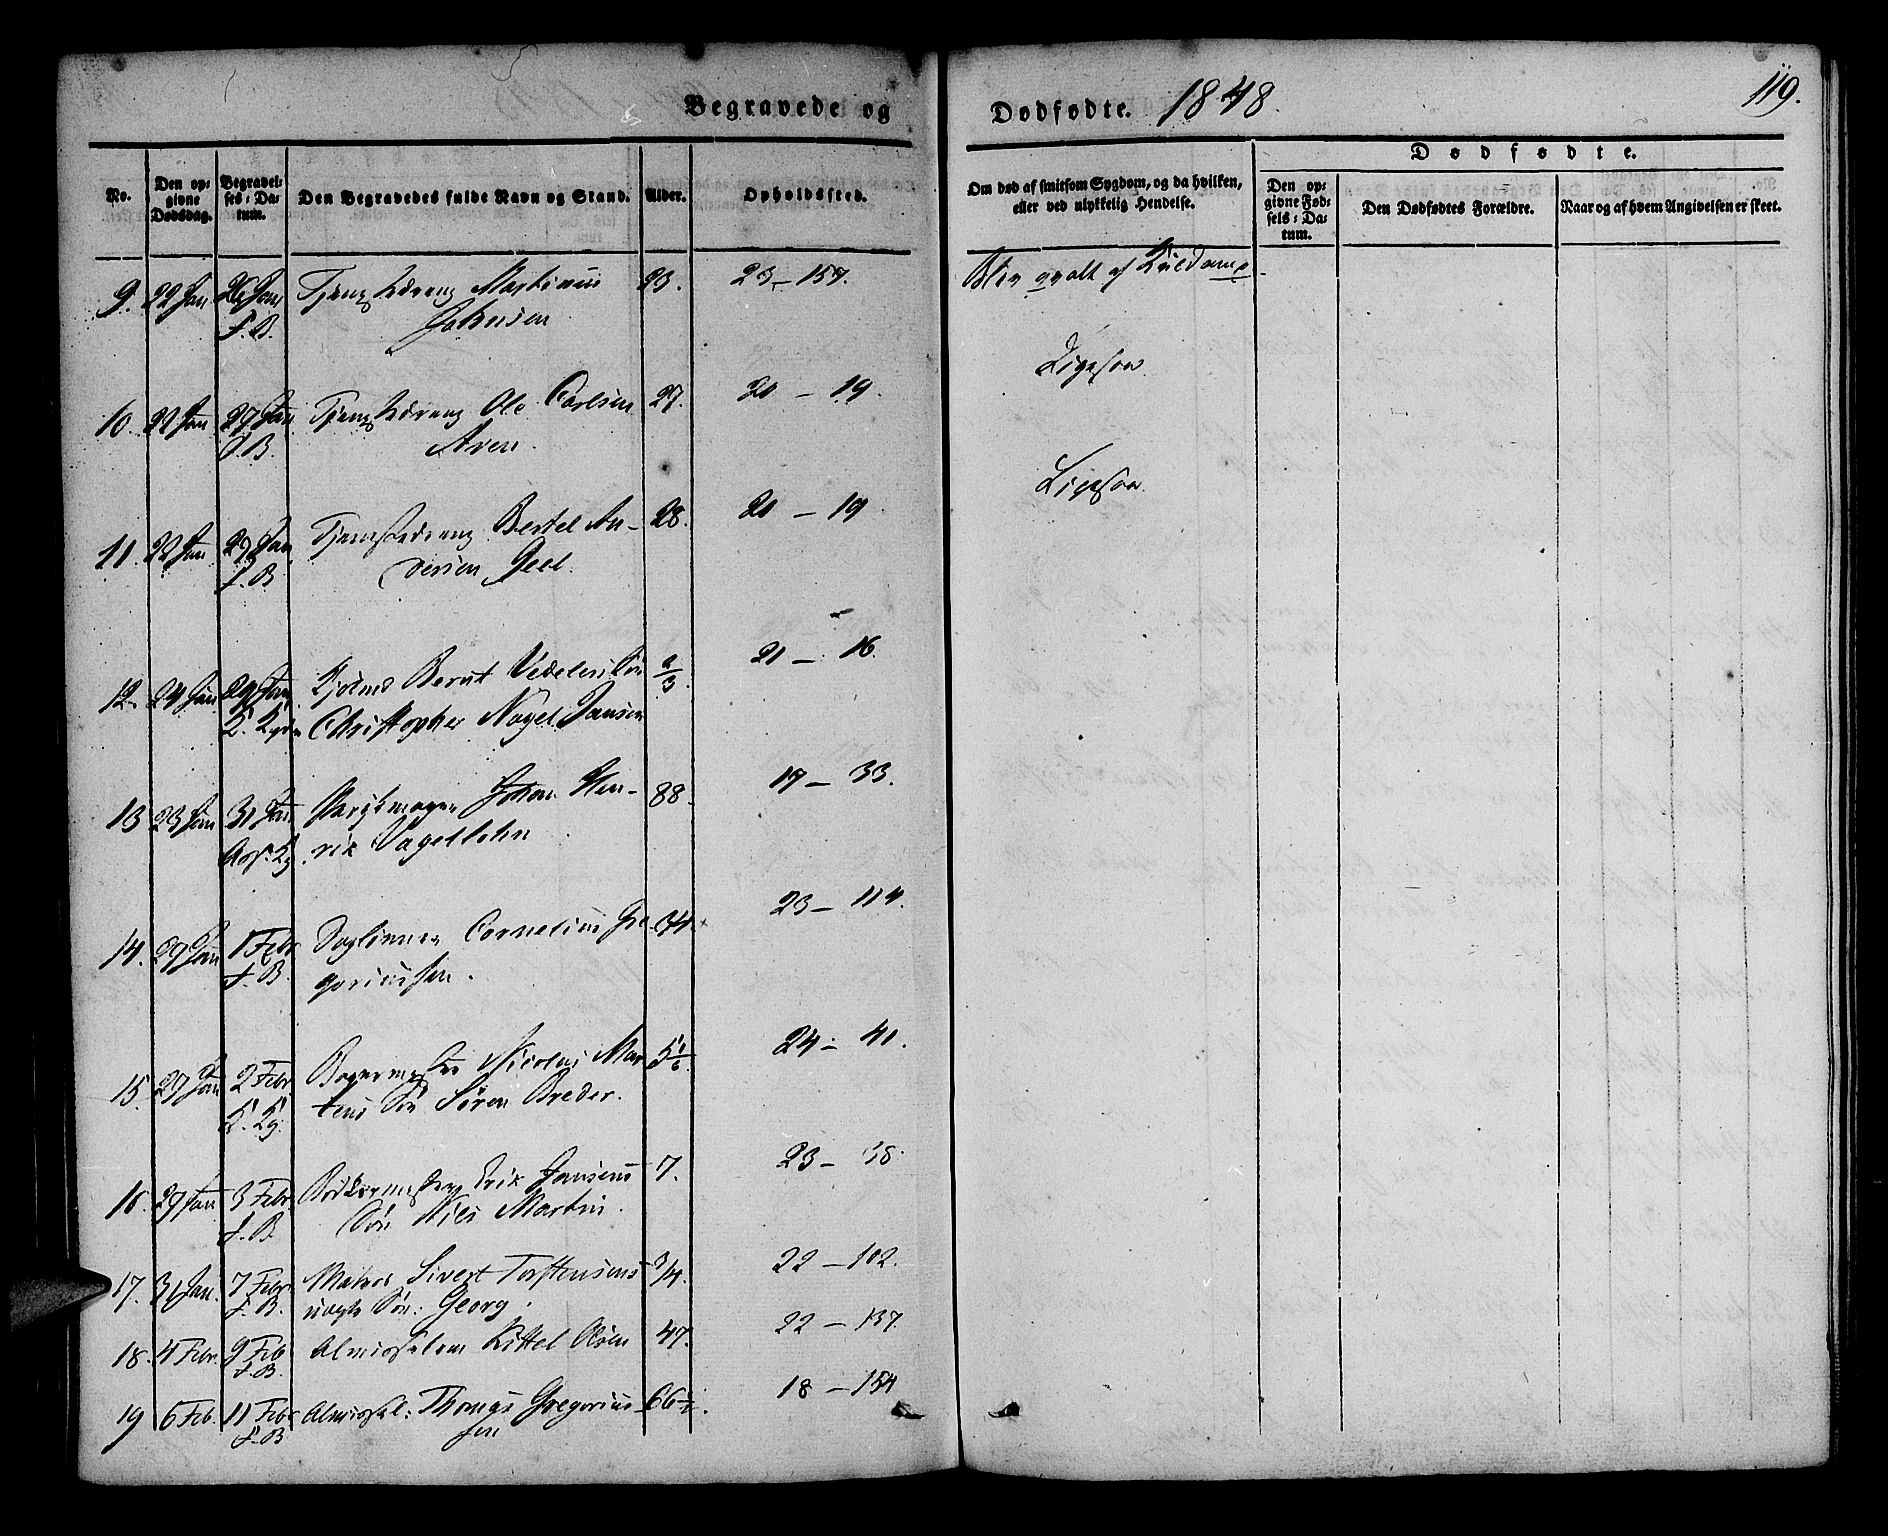 Begravede og
Dødfødte. 1848.
119.
No.
Den opgivne Dødsdag.
Begravelses-Datum.
Den Begravedes fulde Navn og Stand.
Alder.
Opholdssted.
Om død af smitsom Sygdom, og da hvilken, eller ved ulykkelig Hendelse.
Dødfødte.
Den opgivne Fødsels-Datum.
Den Dødfødtes Forældre.
Naar og af hvem Angivelsen er skeet.
9. 22 Jan 26 Jan Tjenestedreng Martinus 23. 23 – 157. Blev qvalt af Kuldamp
F. B. Johnsen
10. 22 Jan 27 Jan Tjenestedreng Ole Carlsen 27. 20 – 19. Ligesaa
F. B. Aven.
11. 22 Jan 29 Jan Tjenestedreng Bertel An- 28. 20 – 19 Ligesaa
F. B. dersen Geel.
12. 24 Jan 29 Jan Bernt Vedelers Søn 2/3. 21 – 16.
Christopher Nagel Jansen
13 23 Jan 31 Jan Parykmager Johan Hen- 88. 17 – 33.
rik Vagelsohn
14. 29 Jan 1 Febr Daglønner Cornelius Gre- 34. 23 – 114.
F. B. goriussen.
15. 27 Jan 2 Febr Bagermester Nicolai Mar- 5 1/6. 24 – 41.
tens Søn Søren Breder.
16. 29 Jan 3 Febr. Bødkermester Erik Jansens 7. 23 – 38.
F. B. Søn Nils Martin.
17. 31 Jan. 7 Febr. Matros Sivert Torstensens 3/4. 22 – 102.
F. B. uægte Søn: Georg.
18. 4 Febr. 9 Feb Almisselem Kittel Olsen 47. 22 – 137.
F. B.
19 6 Feb. 11 Febr Almissel: Thomas Gregorius- 66 1/2. 18 – 154
F. B sen